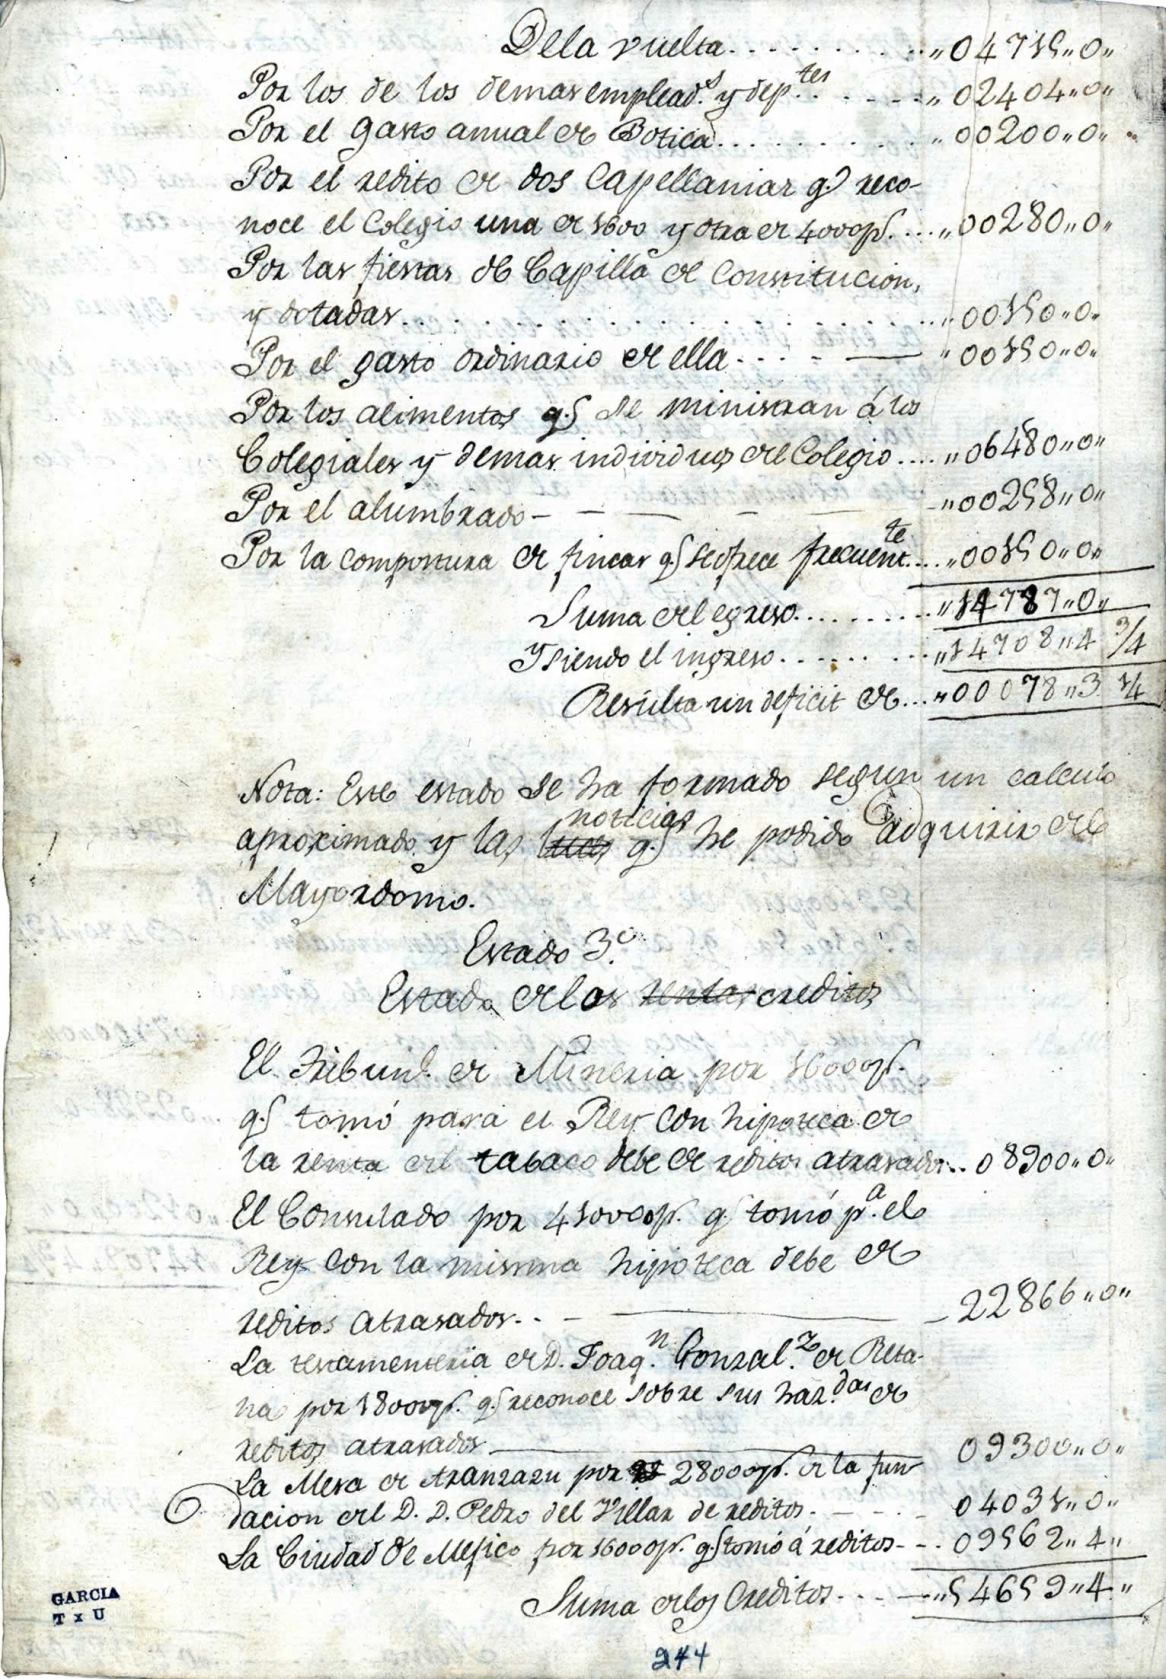 De la vuelta. . . . . . . . . . „04715„0„
Por los de los demas emplead.s y dep.tes . . . . „02404„0„
Por el gasto anual de Botica. . . . . . . . . „00200„0„
Por el redito de dos Capellanias q.e reco-
noce el Colegio una de 1600 y otra de 4000 ps. . . . „00280„0„
Por las fiestas de Capilla de Constitucion,
y dotadas. . . . . . . . . . . . . . . . . . . „00150„0„
Por el gasto ordinario de ella. . . . - — „00150„0„
Por los alimentos q.e se ministran á los
Colegiales y demas individuos del Colegio. . . . „06480„0„
Por el alumbrado - — — — — -„00258„0„
Por la compostura de fincas q.e se ofrece frecuent.te . . . „00150„0„
Suma del egreso. . . . . . . . . „14787„0„
Y siendo el ingreso. . . . . . . . „14708„4 3/4
Resulta un deficit de. . . „00078„3 1/4
Nota: Este estado se ha formado segun un calculo
aproximado y las luces noticias q.e he podido adquirir del
Mayordomo.
Estado 3.º
Estado de los rentas creditos
El Tribun.l de Mineria por 16000 ps.
q.e tomó para el Rey con hipoteca de
la renta del tabaco debe de reditos atrasados. . . 08900„0„
El Consulado por 41000 ps. q.e tomó p.a el
Rey con la misma hipoteca debe de
reditos atrasados. . - — — 22866„0„
La testamenteria de D. Joaq.n Gonzal.z de Reta-
na por 18000 ps. q.e reconoce sobre sus haz.das de
reditos atrasados — 09300„0„
La Mesa de Aranzazu por 28000 ps. de la fun
dacion del D. D. Pedro del Villar de reditos. - - - 04031„0„
La Ciudad de Mejico por 16000 ps. q.e tomó á reditos - - . 09562„4„
Suma de los Creditos. . . - - „54659„4„
GARCIA
T x U
244